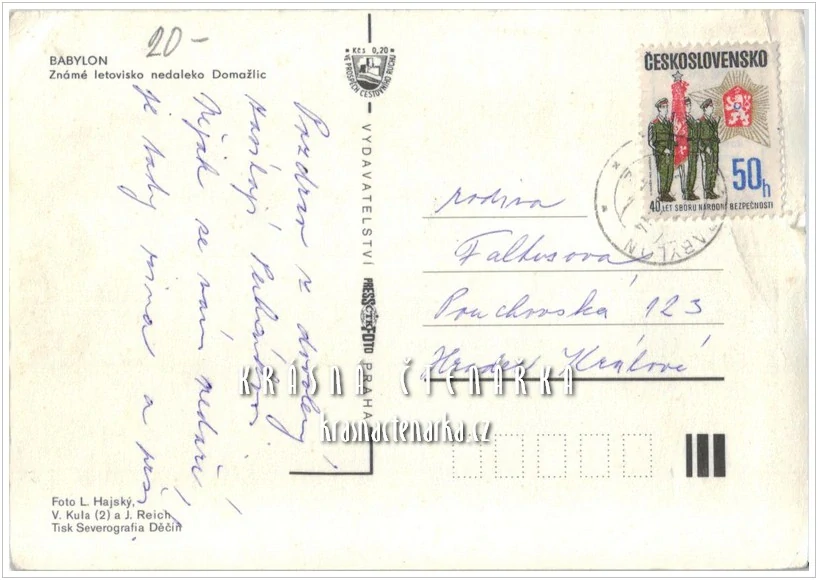 20-
BABYLON
Známé letovisko nedaleko Domažlic
Kčs 0,20
VE PROSPĚCH CESTOVNÍHO RUCHU
ČESKOSLOVENSKO
50h
40 LET SBORU NÁRODNÍ BEZPEČNOSTI
BABYLON
Pozdrav z dovolený
Nějak se nám nedaří
je tady zima a prší
VYDAVATELSTVÍ PRESSFOTO PRAHA
ČTK
rodina
Faltusova
Pouchovská 123
Hradec Králové
KRÁSNÁ ČTENÁRKA
krasnactenarka.cz
Foto L. Hajský,
V. Kula (2) a J. Reich
Tisk Severografia Děčín